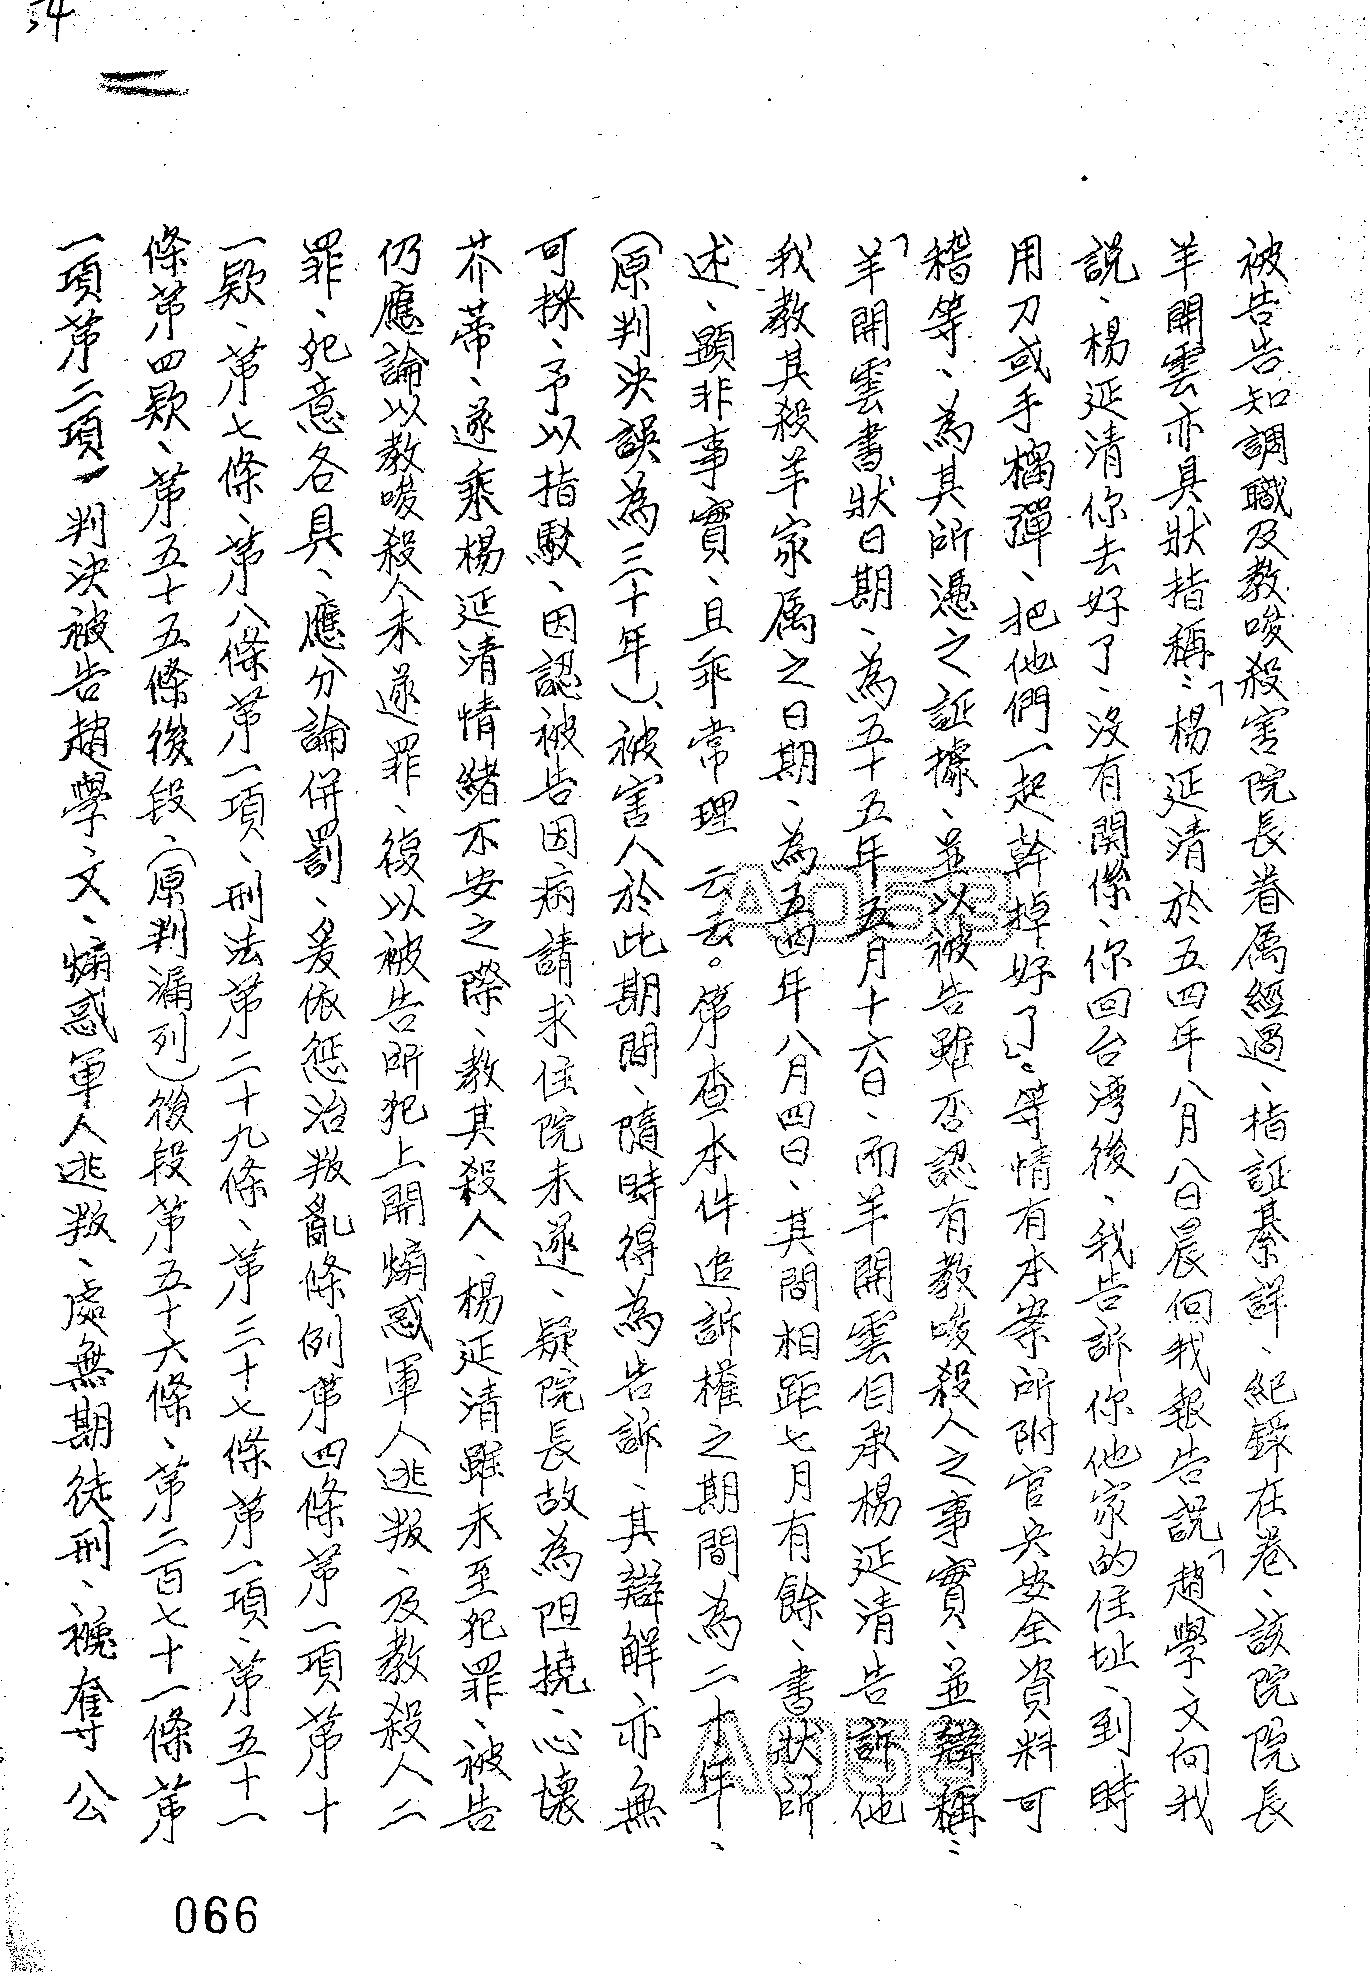 54
被告告知調職及教唆殺害院長眷属經過、指証綦詳、紀錄在卷、該院院長
羊開雲亦具狀指稱：「楊延清於五四年八月八日晨向我報告説「趙學文向我
説、楊延清你去好了、没有関係、你回台湾後、我告訴你他家的住址、到時
用刀或手榴彈、把他們一起幹掉好了」：等情有本案所附官兵安全資料可
稽等、為其所憑之証據、並以被告雖否認有教唆殺人之事實、並辯稱：
「羊開雲書狀日期、為五十五年五月十六日、而羊開雲自承楊延清告訴他
我教其殺羊家属之日期、為五四年八月四日、其間相距七月有餘、書狀所
述、顯非事實、且乖常理云云。第查本件追訴權之期間為二十年、
（原判決誤為三十年）、被害人於此期間、隨時得為告訴、其辯解亦無
可採、予以指駁、因認被告因病請求住院未遂、疑院長故為阻撓、心壞
芥蒂、遂乘楊延清情緒不安之際、教其殺人、楊延清雖未至犯罪、被告
仍應論以教唆殺人未遂罪、復以被告所犯上開煽惑軍人逃叛、及教殺人二
罪、犯意各具、應分論併罰、爰依惩治叛亂條例第四條第一項第十
一款、第七條、第八條第一項、刑法第二十九條、第三十七條第一項、第五十一
條第四款、第五十五條後段、（原判漏列）後段第五十六條、第二百七十一條第
一項第二項、判決被告趙學、文、煽惑軍人逃叛、處無期徒刑、褫奪公
A053
A053
066